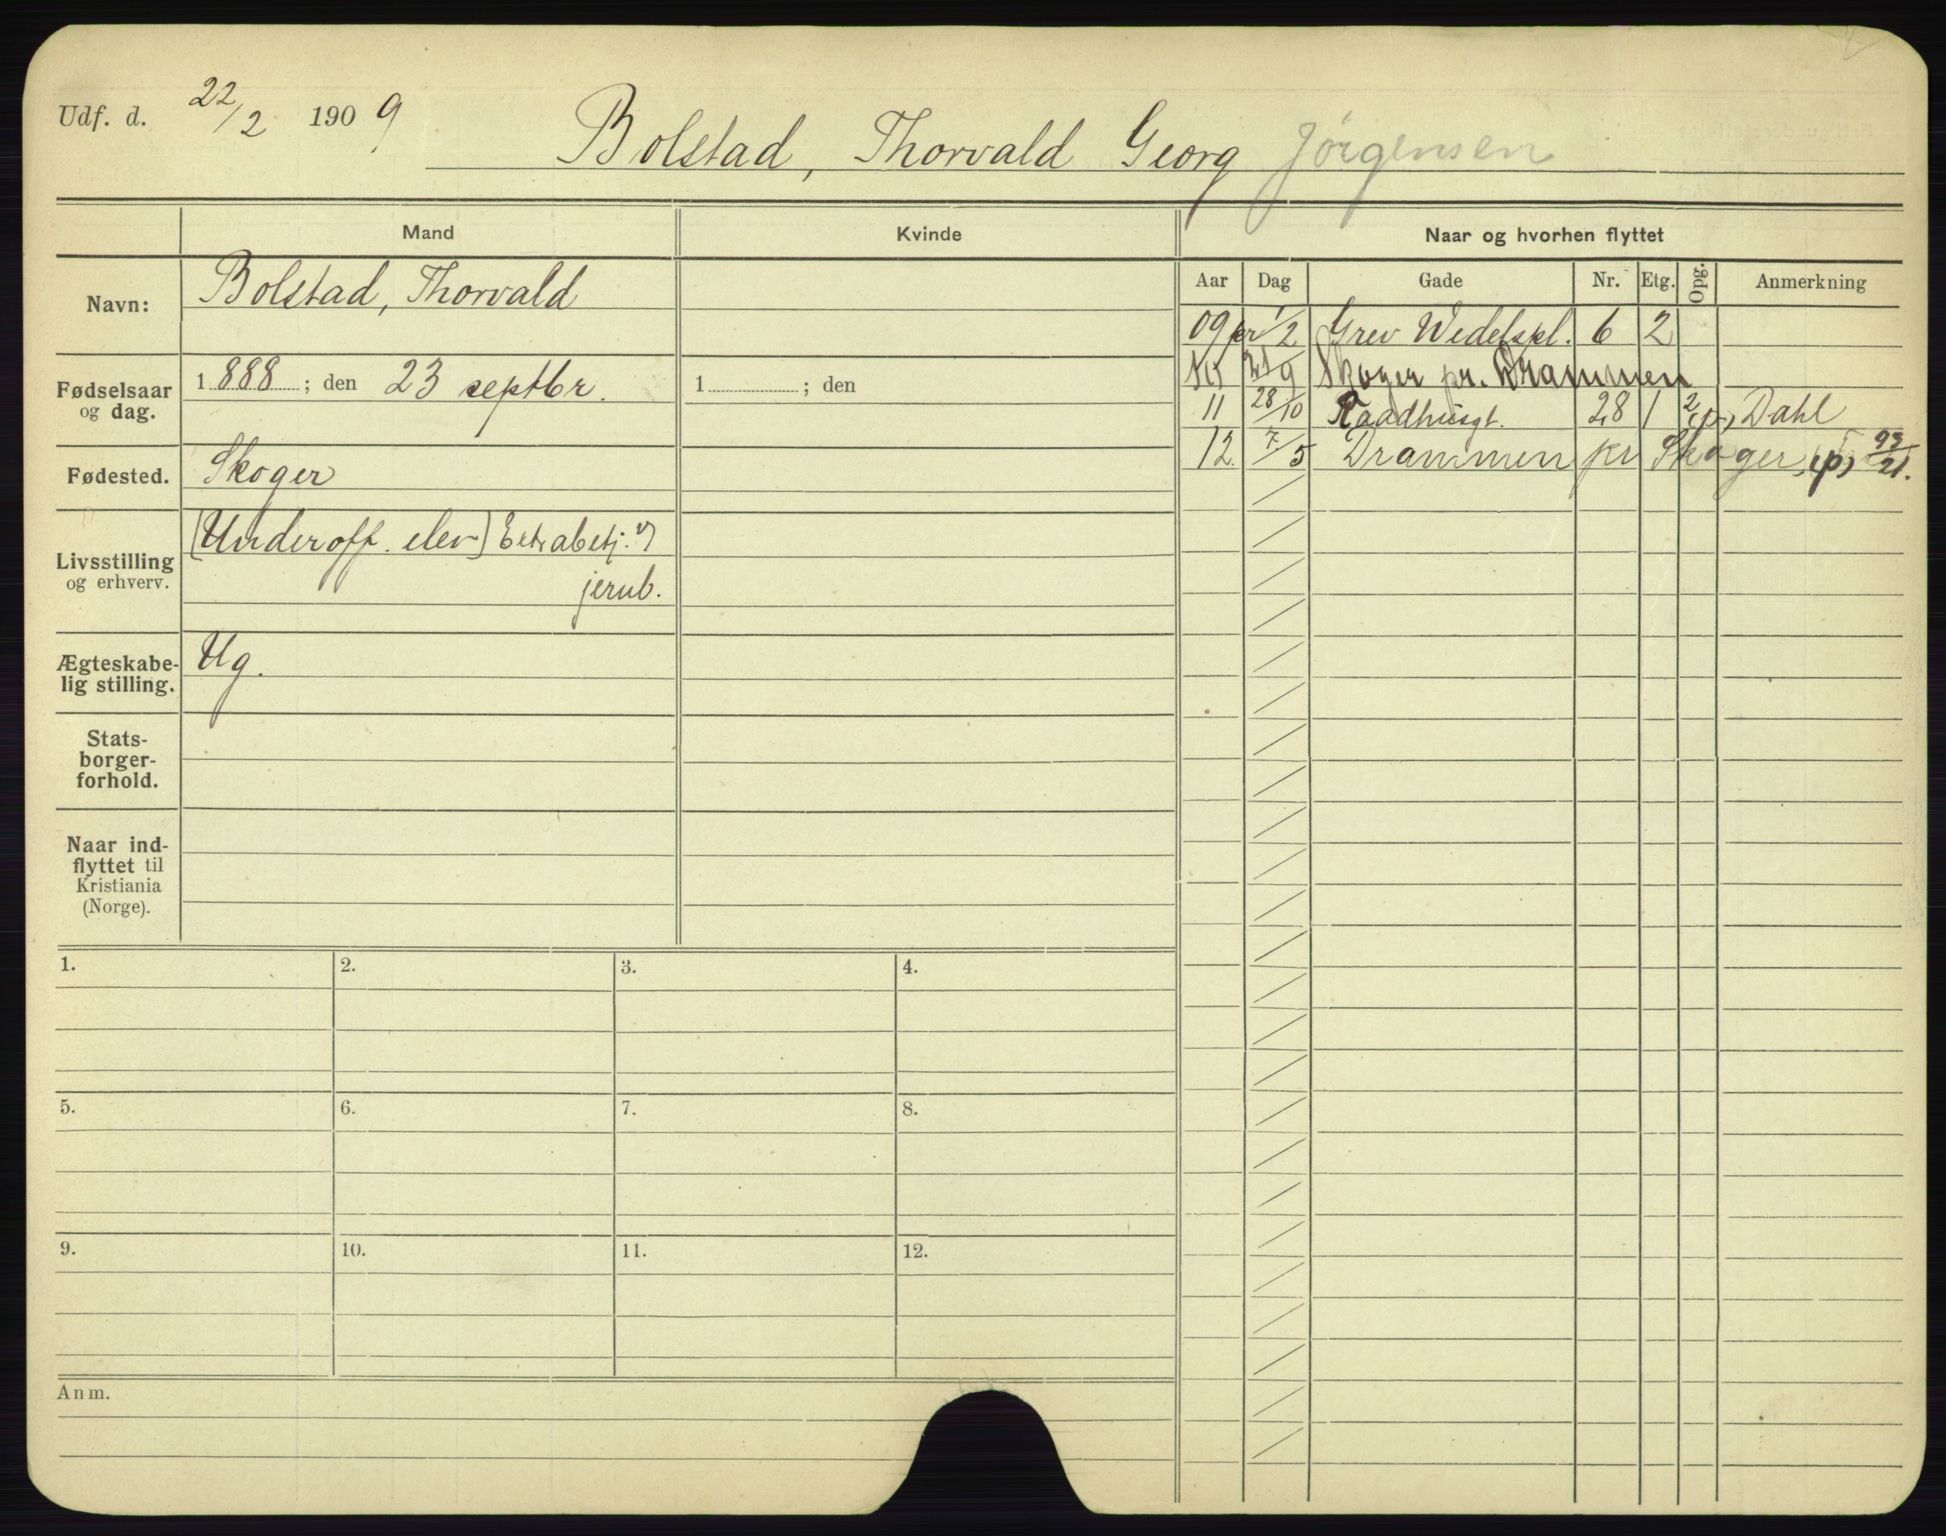 Udf. d. 22/2 1909
Bolstad, Thorvald Georg Jörgensen
Mand
Kvinde
Naar og hvorhen flyttet
Aar Dag Gade Nr. Etg. Opg. Anmerkning
Navn: Bolstad, Thorvald
09 pr 1/2 Grev Wedelspl. 6 2
21/9 Skoger pr. Drammen
11 28/10 Raadhusgt. 28 1 2 (p), Dahl
12. 7/5 Drammen pr Skoger, (p) 93/21.
Fødselsaar og dag. 1888; den 23 septbr.
1 ; den
Fødested. Skoger
Livsstilling og erhverv. [Underoff. elev] Extrabetj. v/
jernb.
Ægteskabe-
lig stilling. Ug.
Stats-
borger-
forhold.
Naar ind-
flyttet til
Kristiania
(Norge).
1. 2. 3. 4.
5. 6. 7. 8.
9. 10. 11. 12.
Anm.